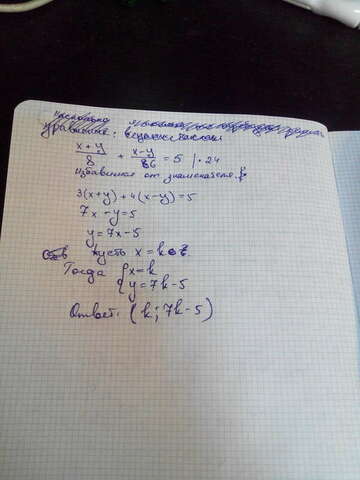 уравнение:
x+y/8 + x-y/6 = 5 | · 24
избавимся от знаменателя.
3(x+y)+4(x-y)=5
7x-y=5
y=7x-5
пусть x=k
Тогда {x=k
{y=7k-5
Ответ: (k; 7k-5)